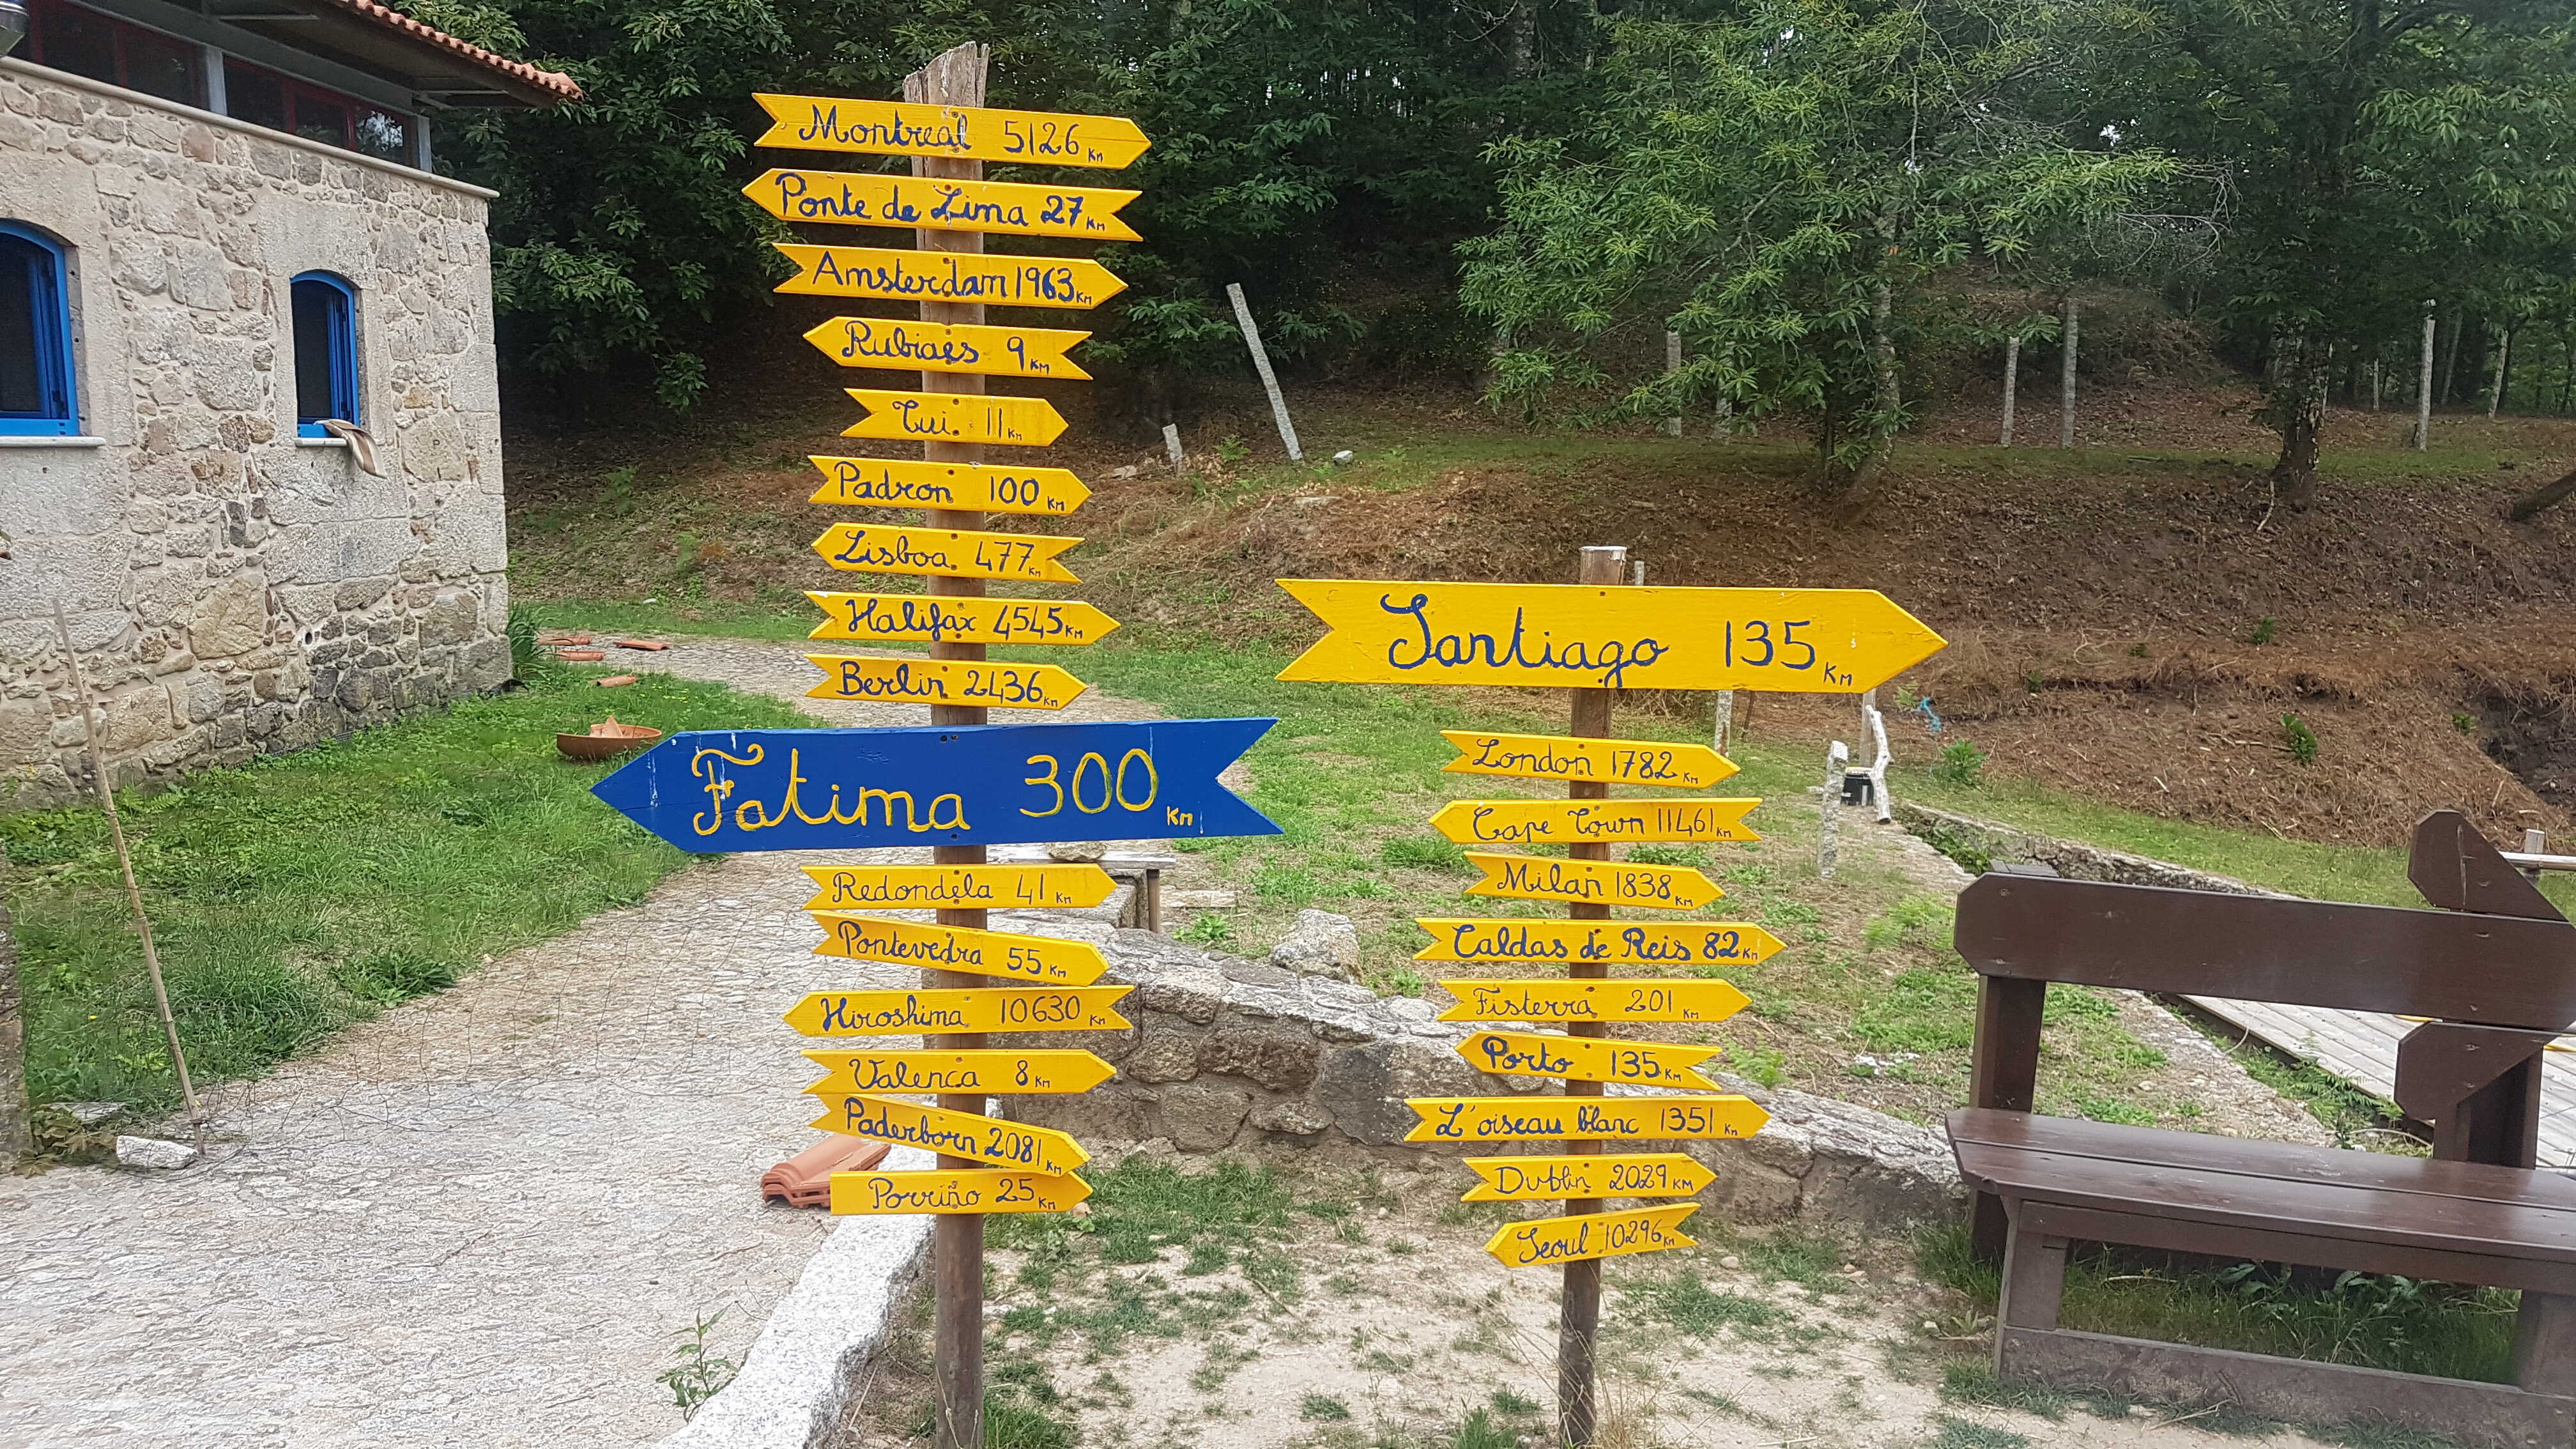 Montreal 5126 Km
Ponte de Lima 27 Km
Amsterdam 1963 Km
Rubiaes 9 Km
Tui. 11 Km
Padron 100 Km
Lisboa. 477 Km
Halifax 4545 Km
Berlin 2436 Km
Fatima 300 Km
Redondela 41 Km
Pontevedra 55 Km
Hiroshima 10630 Km
Valenca 8 Km
Paderborn 2081 Km
Porriño 25 Km
Santiago 135 Km
London 1782 Km
Cape Town 11461 Km
Milan 1838 Km
Caldas de Reis 82 Km
Fisterra 201 Km
Porto 135 Km
L'oiseau blanc 1351 Km
Dublin 2029 KM
Seoul 10296 Km